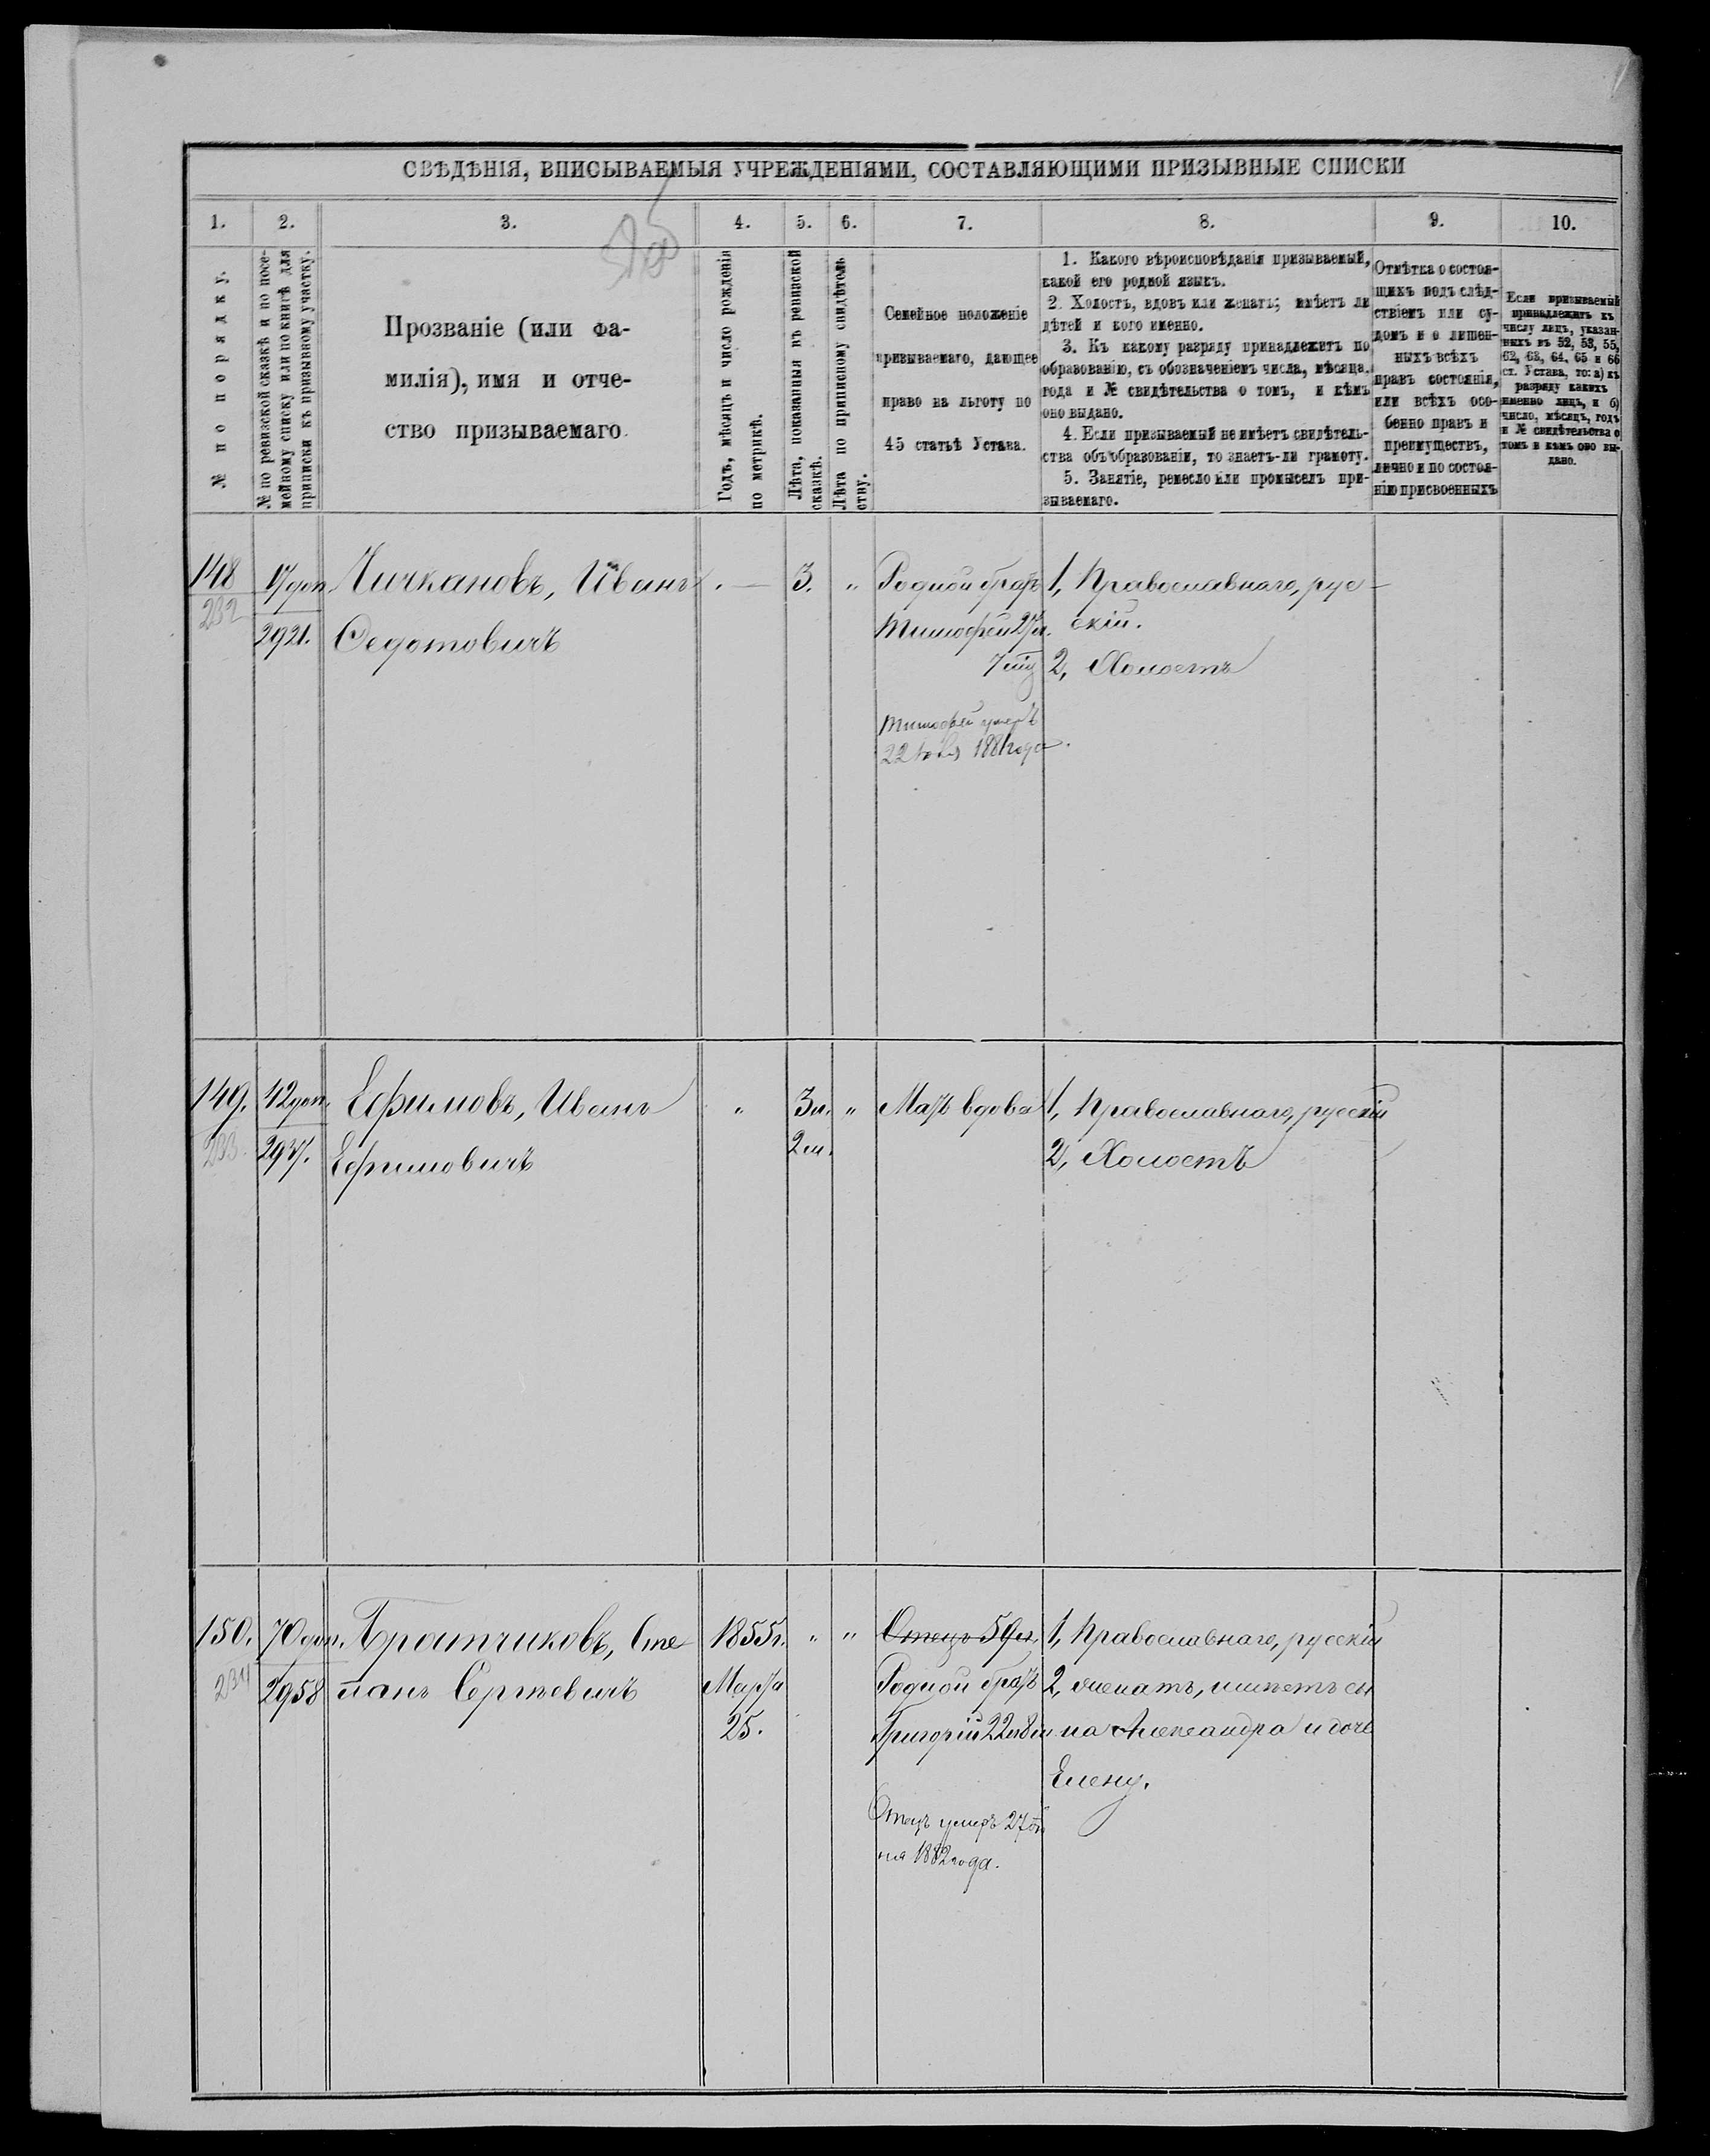 СВѢДѢНІЯ, ВПИСЫВАЕМЫЯ УЧРЕЖДЕНІЯМИ, СОСТАВЛЯЮЩИМИ ПРИЗЫВНЫЕ СПИСКИ
1. 2. 3. 4. 5. 6. 7. 8. 9. 10.
№ по порядку.
№ по ревизской сказкѣ и по посе-
мейному списку или по книгѣ для
приписки къ призывному участку.
Прозваніе (или фа-
милія), имя и отче-
ство призываемаго.
Годъ, мѣсяцъ и число рожденія
по метрикѣ.
Лѣта, показанныя въ ревизской
сказкѣ.
Лѣта по приписному свидѣтель
ству.
Семейное положеніе
призываемаго, дающее
право на льготу по
45 статьѣ Устава.
1. Какого вѣроисповѣданія призываемый,
какой его родной языкъ.
2. Холостъ, вдовъ или женатъ; имѣетъ ли
дѣтей и кого именно.
3. Къ какому разряду принадлежитъ по
образованію, съ обозначеніемъ числа, мѣсяца,
года и № свидѣтельства о томъ, и кѣмъ
оно выдано.
4. Если призываемый не имѣетъ свидѣтель-
ства объ образованіи, то знаетъ-ли грамоту.
5. Занятіе, ремесло или промыселъ при-
зываемаго.
Отмѣтка о состоя-
щихъ подъ слѣд-
ствіемъ или су-
домъ и о лишен-
ныхъ всѣхъ
правъ состоянія,
или всѣхъ осо-
бенно правъ и
преимуществъ,
лично и по состоя-
нію присвоенныхъ
Если призываемый
принадлежитъ къ
числу лицъ, указан-
ныхъ въ 52, 53, 55,
62, 63, 64, 65 и 66
ст. Устава, то: а) къ
разряду какихъ
именно лицъ, и б)
число, мѣсяцъ, годъ
и № свидѣтельства о
томъ и кѣмъ оно вы-
дано.
148
232
17 доп.
2921.
Чичкановъ, Иванъ
Федотовичъ
. —
3.
"
Родной братъ
Тимофей 27 л.
7 м
Тимофей умеръ
22 1881 года.
1, Православнаго, рус-
скій.
2, Холостъ
149.
233.
42 доп.
2937.
Ефимовъ, Иванъ
Ефимовичъ
"
3 л.
2 м.
"
Мать вдова
1, Православнаго, русскій
2, Холостъ
150.
234
70 доп.
2958
Братчиковъ, Сте
панъ Сергѣевичъ
1855 г.
Марта
25.
"
"
Отецъ 59 л.
Родной братъ
Григорій 22 л 8 м
Отецъ умеръ 27
ня 1882 года.
1, Православнаго, русскій
2, женатъ, имѣетъ сы
на Александра и дочь
Елену.